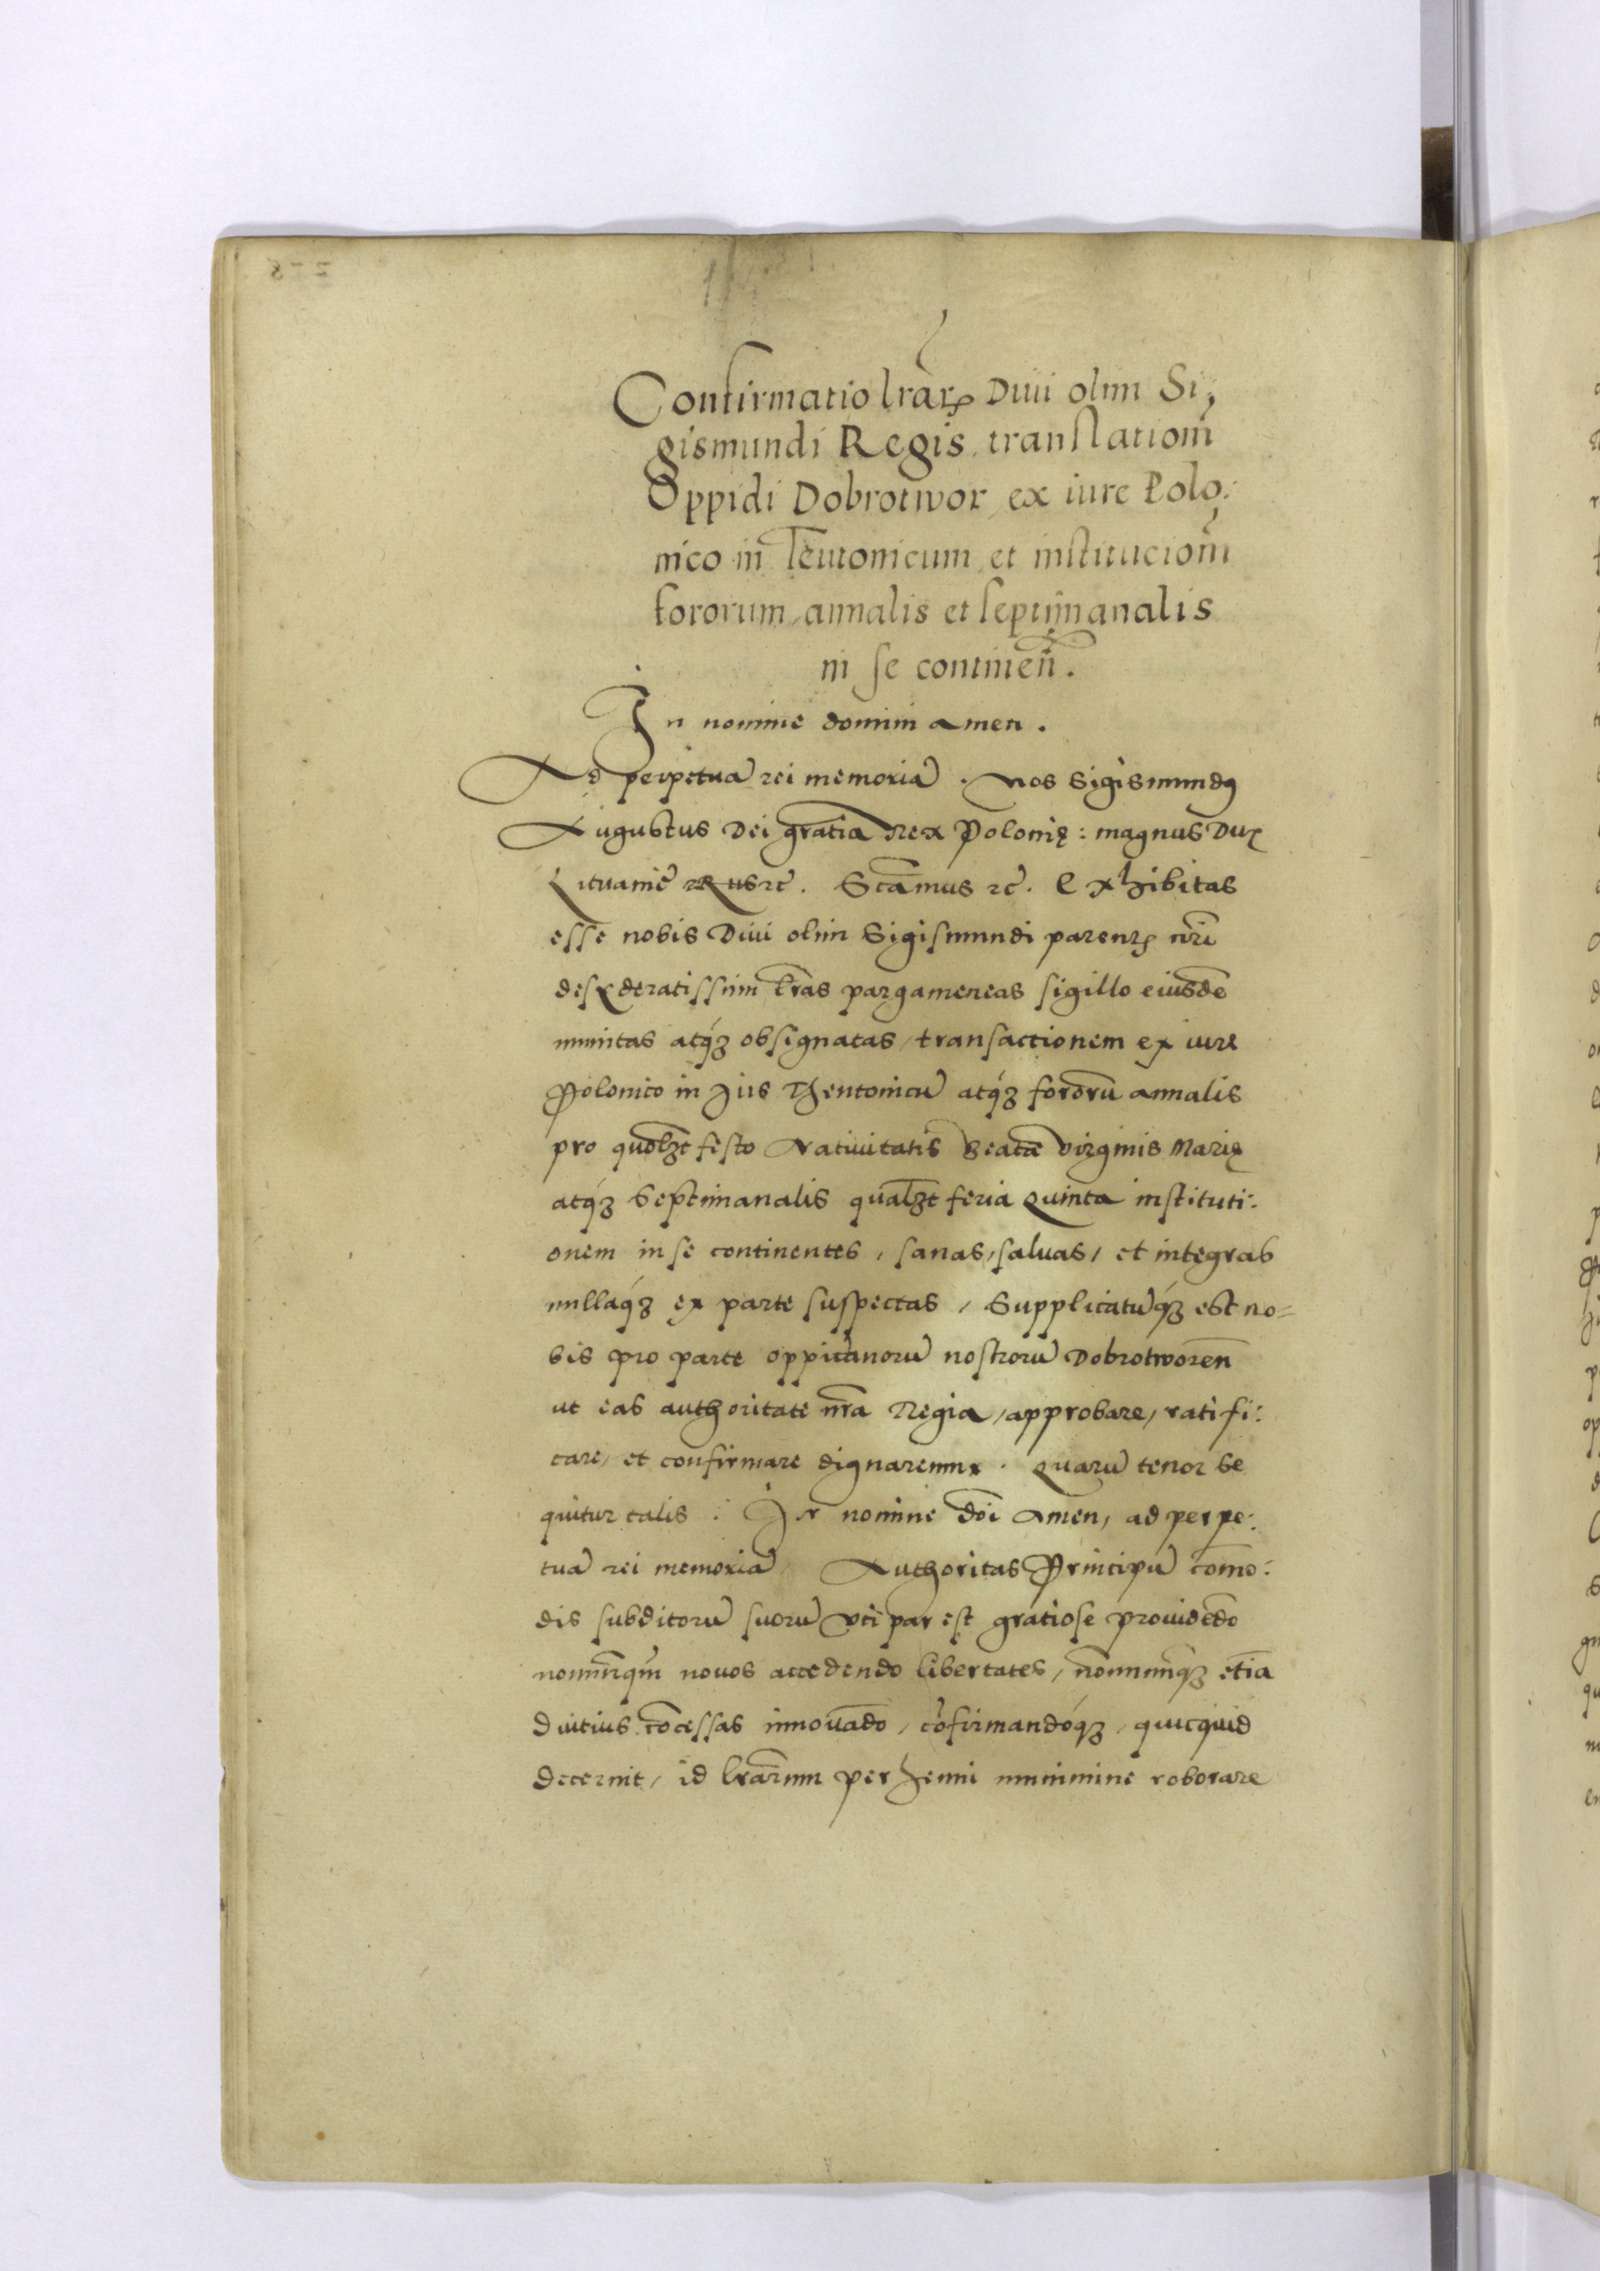 Confirmatio lrār̨ Diui olim Si,
gismundi Regis, translatiom̄
Oppidi Dobrotwor, ex iure Polo:
nico in Teutonicum et instituciom̄
fororum, annalis et septimanalis
in se contineñ.
In nomine domini amen.
Ad perpetuā rei memoriā. Nos Sigismundꝰ
Augustus Dei gratia Rex Polonię: magnus Dux
Lituanie Rus ⁊c̄. Scāmus ⁊c̄. Exhibitas
esse nobis Diui olim Sigismundi parentꝭ nr̄i
desyderatissimi lr̄as pargameneas sigillo eiusdē
munitas atqꝫ obsignatas, transactionem ex iure
Polonico in Jus Theutonicū atqꝫ fororū annalis
pro quolꝫt festo Natiuitatis Beatæ Virginis Marię
atqꝫ Septimanalis qualꝫt feria Quinta instituti:
onem in se continentes, sanas, saluas, et integras
nullaqꝫ ex parte suspectas, Supplicatūqꝫ est no=
bis pro parte oppidanorū nostrorū Dobrotworeñ
ut eas authoritate nr̄a Regia, approbare, ratifi:
care, et confirmare dignaremur. Quarū tenor se
quitur talis: In nomine dōi Amen, ad perpe:
tuā rei memoriā Authoritas Principū com̄o:
dis subditorū suorū vti par est gratiose prouidēdo
nonnūqm̄ nouos accedendo libertates, nōnunqꝫ etiā
diutius cōcessas innouādo, cōfirmandoqꝫ, quicquid
decernit, id lrārum perhenni munimine roborare